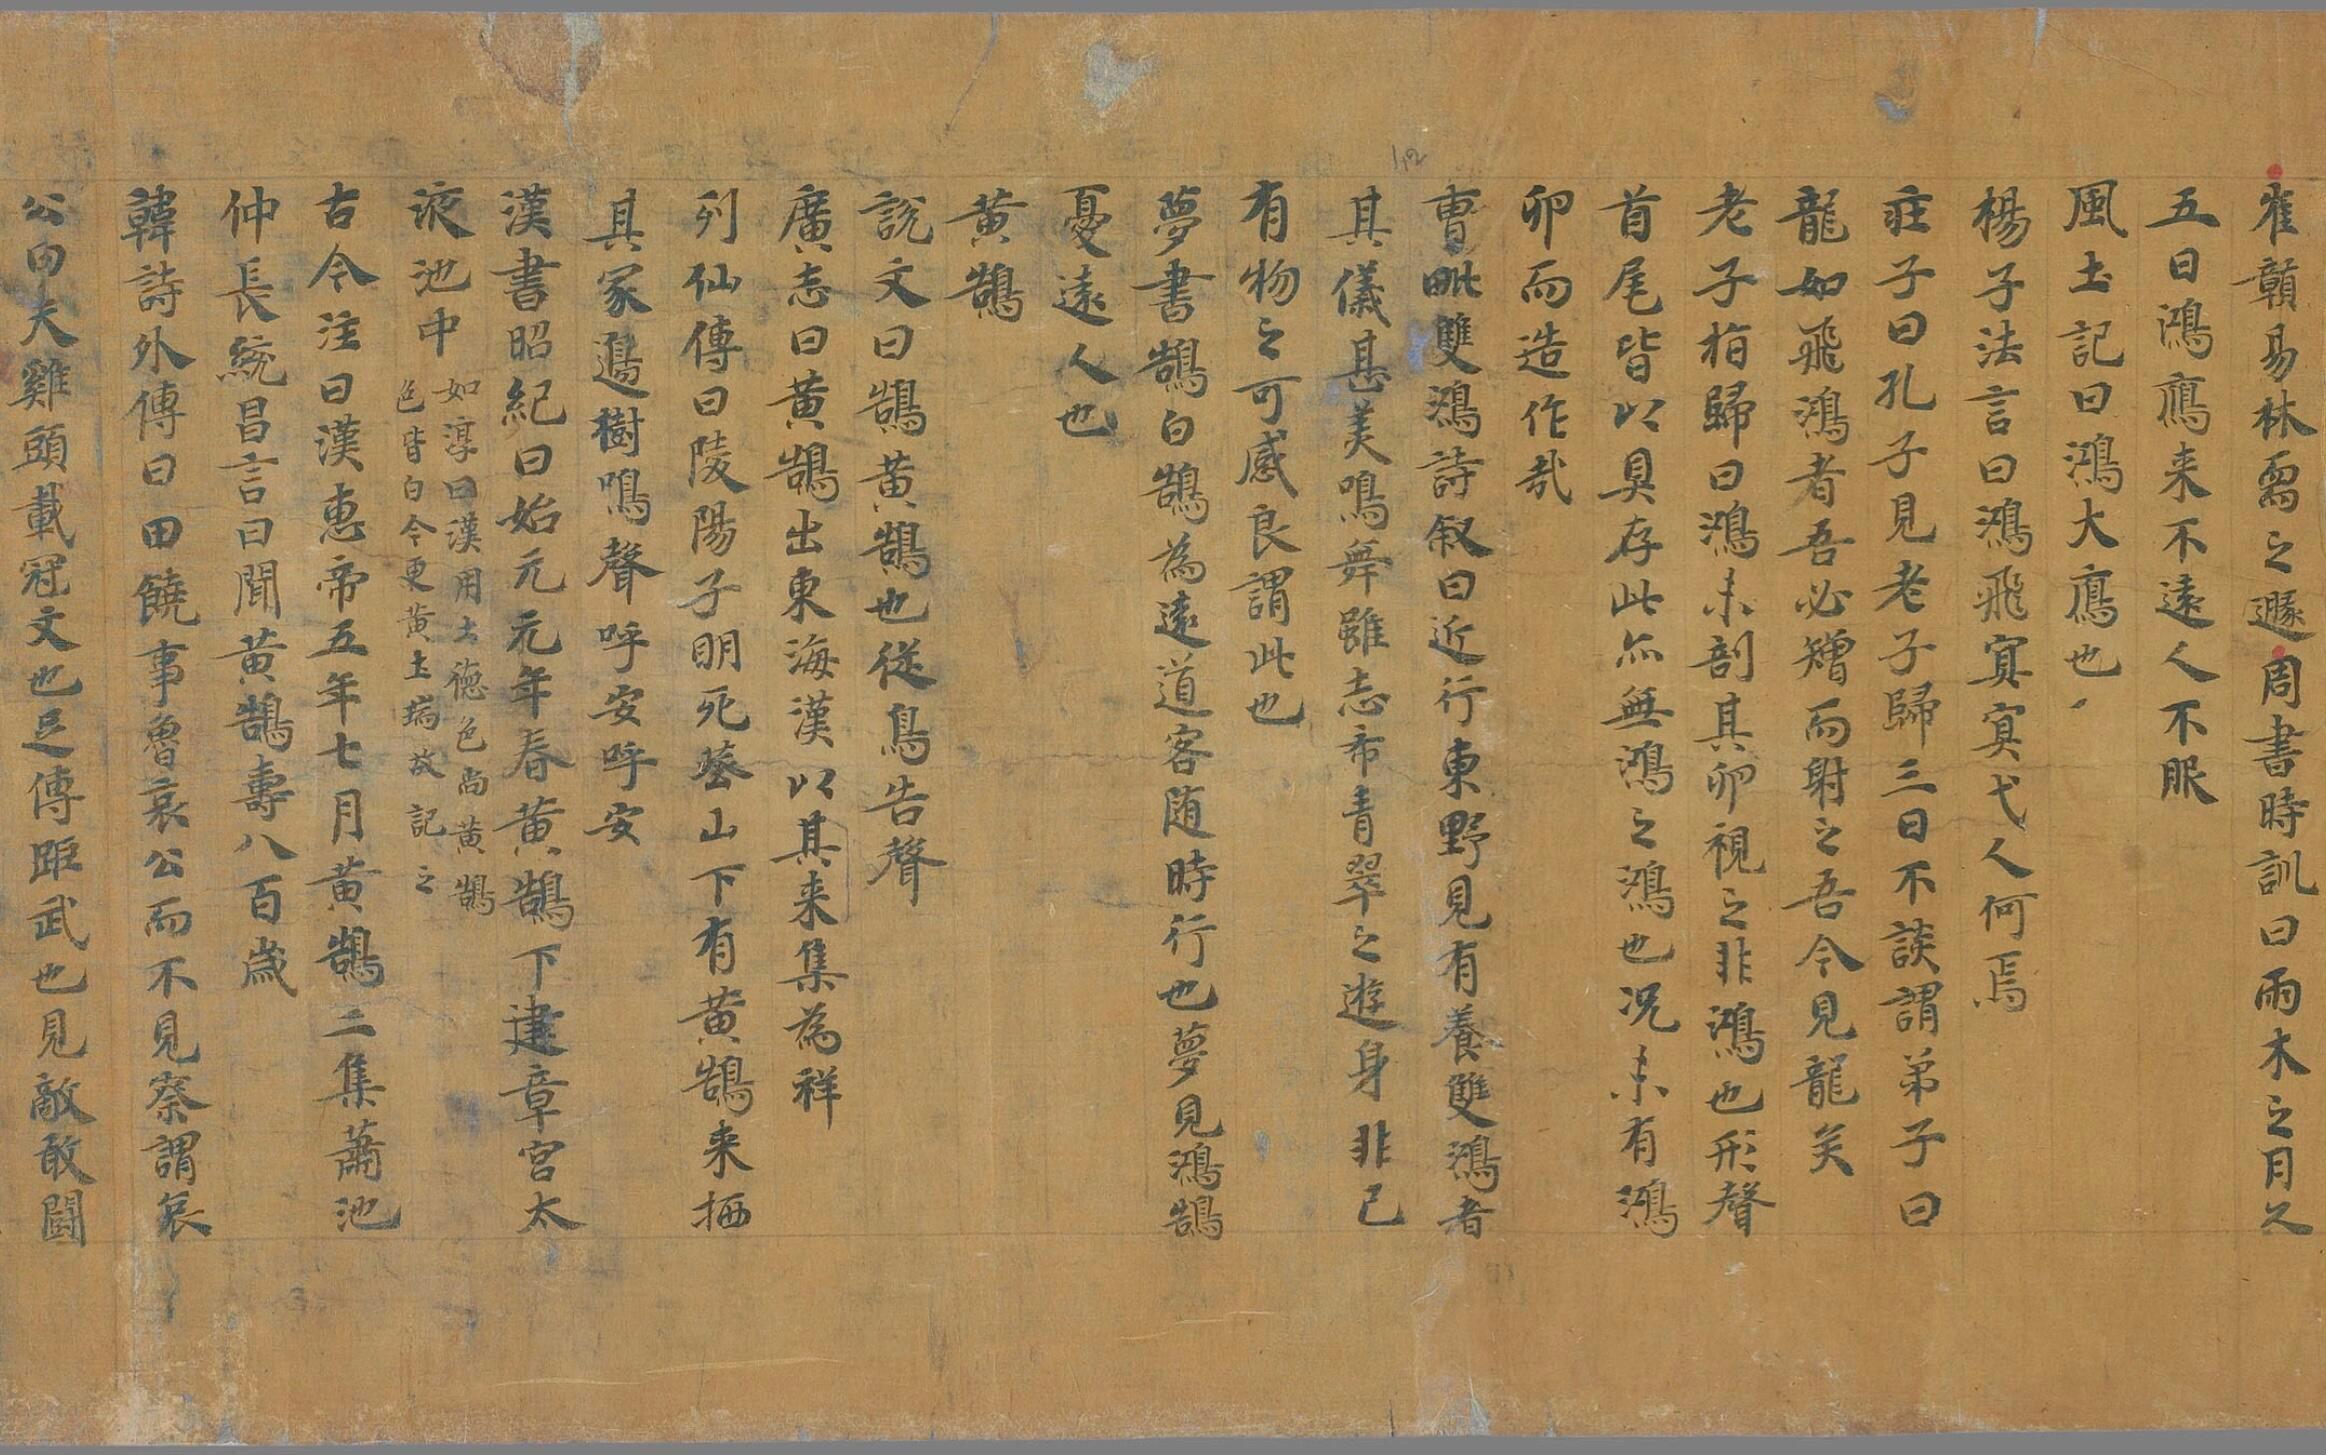 崔贛易林需之遯周書時訓曰雨木之月久
五日鴻鴈来不遠人不服
風土記曰鴻大鴈也
楊子法言曰鴻飛寘寘弋人何焉
莊子曰孔子見老子歸三日不談謂弟子曰
龍如飛鴻者吾必矰而射之吾今見龍矣
老子指歸曰鴻未剖其卵視之非鴻也形聲
首尾皆以具存此亦無鴻之鴻也況未有鴻
卵而造作哉
曹毗雙鴻詩叙曰近行東野見有養雙鴻者
其儀甚美鳴舞雖志希青翠之遊身非己
有物之可感良謂此也
夢書鵠白鵠為遠道客随時行也夢見鴻鵠
憂遠人也
黄鵠
說文曰鵠黄鵠也従鳥告聲
廣志曰黄鵠出東海漢以其来集為祥
列仙傳曰陵陽子明死葬山下有黄鵠来栖
其冢邊樹鳴聲呼安呼安
漢書昭紀曰始元元年春黄鵠下建章宮太
液池中 如淳曰漢用土德色尚黄鵠
色皆白今更黄土瑞故記之
古今注曰漢惠帝五年七月黄鵠二集蕭池
仲長統昌言曰聞黄鵠壽八百歳
韓詩外傳曰田饒事魯哀公而不見察謂哀
公曰夫雞頭載冠文也足傳距武也見敵敢鬪